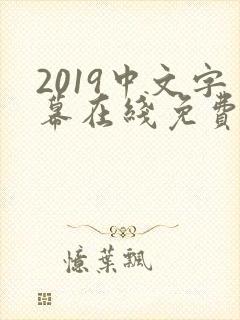 2019中文字
幕在綫免費
憶葉飄